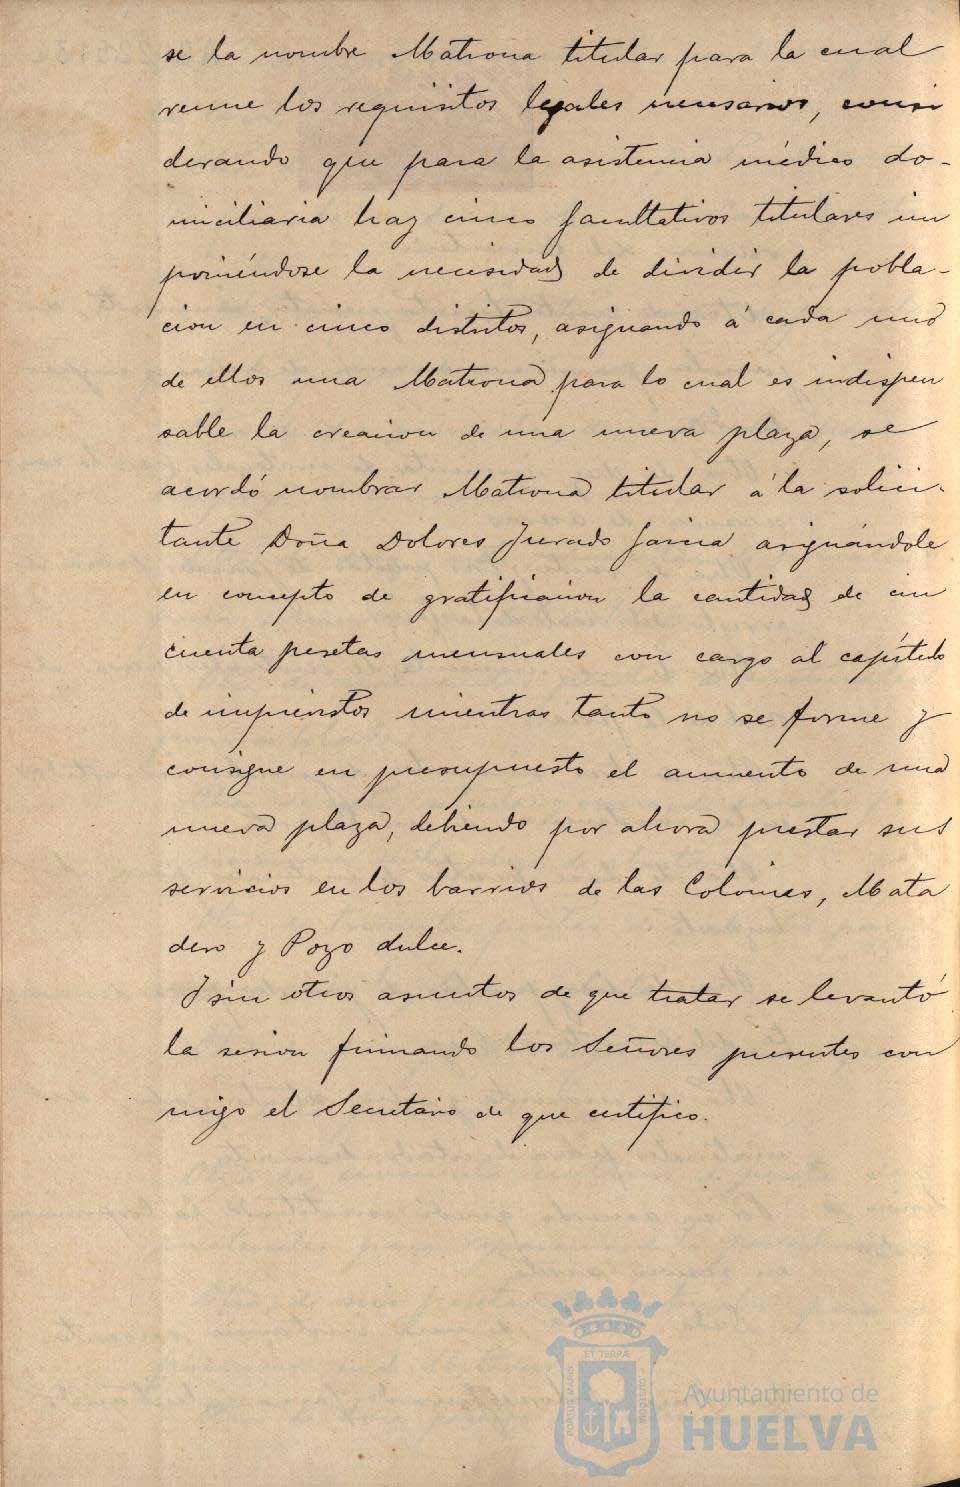 se la nombre Matrona titular para la cual
reune los requisitos legales necesarios, consi
derando que para la asistencia médico do-
miciliaria hay cinco facultativos titulares im
poniéndose la necesidad de dividir la pobla-
cion en cinco distritos, asignando á cada uno
de ellos una Matrona para lo cual es indispen
sable la creacion de una nueva plaza, se
acordó nombrar Matrona titular á la solici-
tante Doña Dolores Jurado Garcia asignándole
en concepto de gratificacion la cantidad de cin
cuenta pesetas mensuales con cargo al capítulo
de imprevistos mientras tanto no se forme y
consigne en presupuesto el aumento de una
nueva plaza, debiendo por ahora prestar sus
servicios en los barrios de las Colonias, Mata
dero y Pozo dulce.
Y sin otros asuntos de que tratar se levantó
la sesion firmando los Señores presentes con
migo el Secretario de que certifico.
ET TERRÆ
PORTUS MARIS
CUSTODIA
Ayuntamiento de
HUELVA